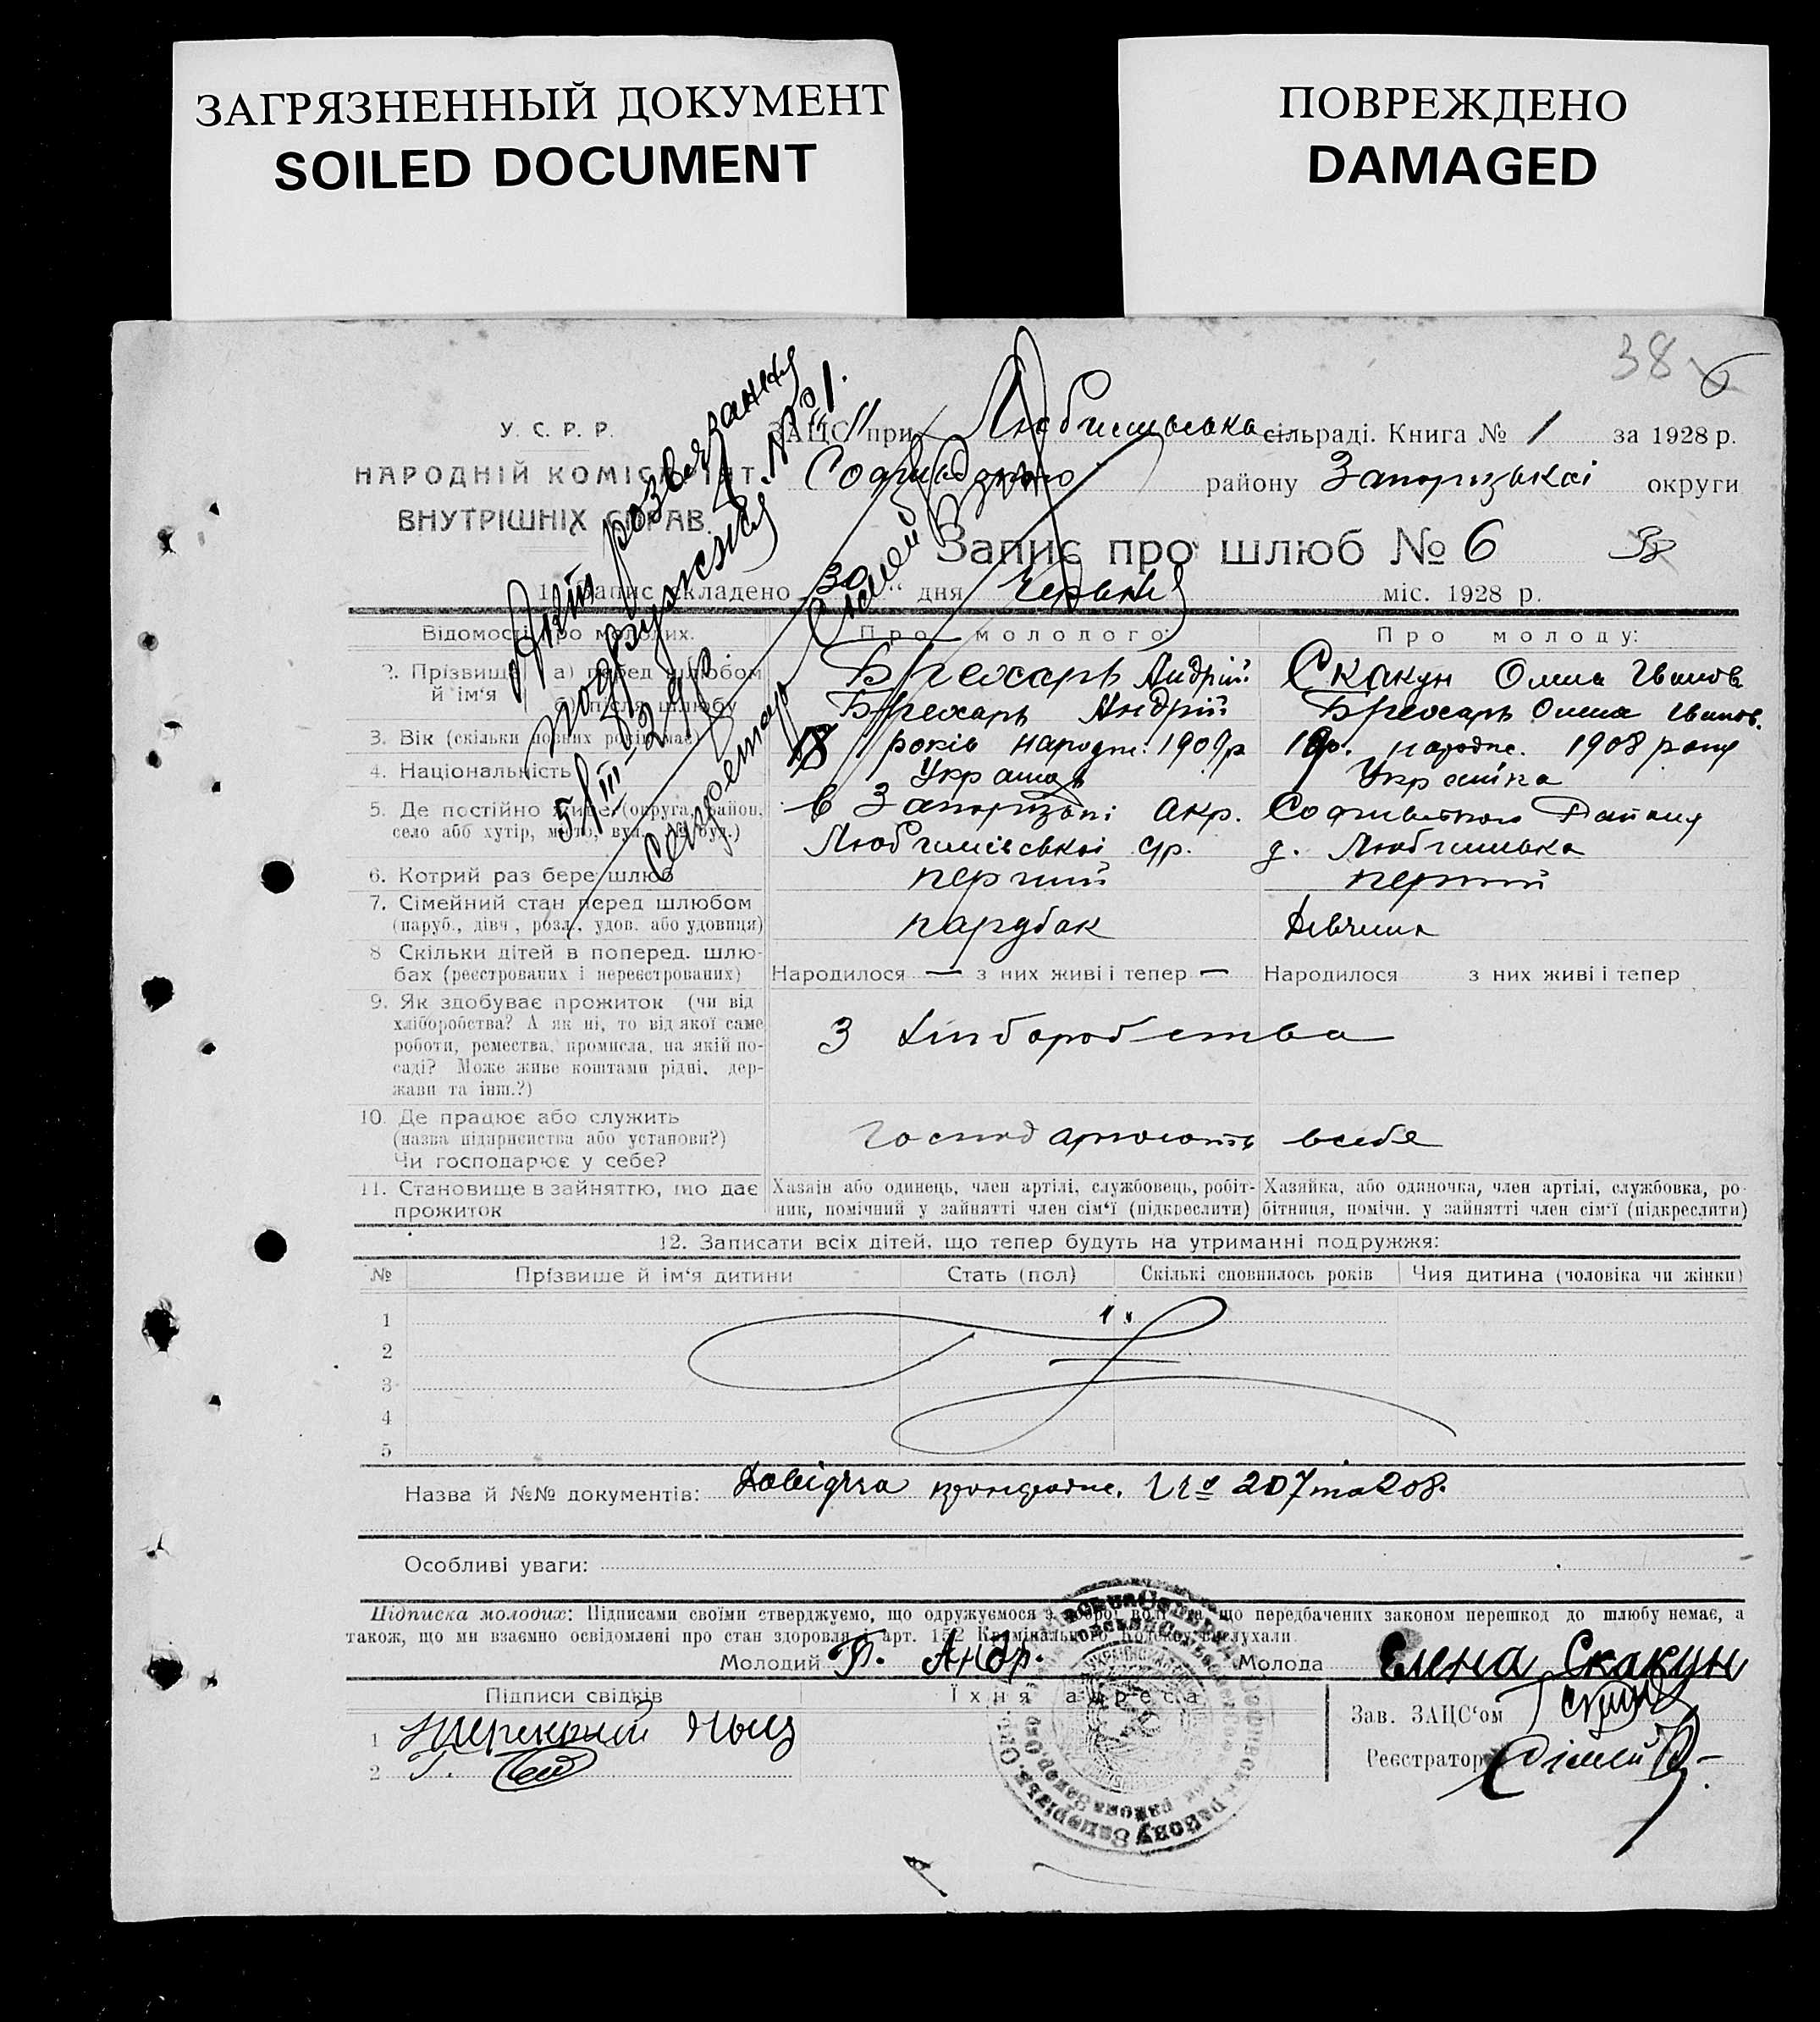 ЗАГРЯЗНЕННЫЙ ДОКУМЕНТ
SOILED DOCUMENT
ПОВРЕЖДЕНО
DAMAGED
38
6
У. С. Р. Р.
НАРОДНІЙ КОМІСАРІЯТ
ВНУТРІШНІХ СПРАВ.
ЗАЦС при сільраді. Книга № 1 за 1928 р.
району Запорізької округи
Запис про шлюб № 6
1. Запис складено 30 “ дня Червня міс. 1928 р.
Акт розвязання
подружжя № 1.
5/III-29 р.
Секретарь
Відомості про молодих.
Про молодого:
Про молоду:
2. Прізвище й ім‘я
а) перед шлюбом
Андрій
Скакун Олина Іванов
б) після шлюбу
Андрій
Олина Іванов.
3. Вік (скільки повних років має)
18 років народж. 1909 р
19 р. народж. 1908 року
4. Національність
Українка
5. Де постійно живе (округа, район,
село або хутір, місто, вул., № буд.)
в Запорізькі окр.
Софиевського Району
Любимівської с/р.
д. Любимивка
6. Котрий раз бере шлюб
перший
перший
7. Сімейний стан перед шлюбом
(паруб., дівч., розл., удов. або удовиця)
парубак
Девчина
8 Скільки дітей в поперед. шлю-
бах (реєстрованих і нереєстрованих)
Народилося — з них живі і тепер —
Народилося з них живі і тепер
9. Як здобуває прожиток (чи від
хліборобства? А як ні, то від якої саме
роботи, ремества, промисла, на якій по-
саді? Може живе коштами рідні, дер-
жави та інш.?)
З Хліборобства
10. Де працює або служить
(назва підприємства або установи?)
Чи господарює у себе?
Господарюють всебе
11. Становище в зайняттю, що дає
прожиток
Хазяін або одинець, член артілі, службовець, робіт-
ник, помічний у зайнятті член сім‘ї (підкреслити)
Хазяйка, або одиночка, член артілі, службовка, ро-
бітниця, помічн. у зайнятті член сім‘ї (підкреслити)
12. Записати всіх дітей, що тепер будуть на утриманні подружжя:
№ Прізвише й ім‘я дитини Стать (пол) Скількі сповнилось років Чия дитина (чоловіка чи жінки)
1
2
3
4
5
Назва й №№ документів: Довідка № 207 та 208.
Особливі уваги:
Підписка молодих: Підписами своїми стверджуємо, що одружуємося з доброї волі та що передбачених законом перешкод до шлюбу немає, а
також, що ми взаємно освідомлені про стан здоровля і арт. 152 Кримінального Кодексу вислухали.
Молодий Б. Андр.
Молода Елена Скакун
Підписи свідків
Їхня адреса
1
2
Зав. ЗАЦС‘ом
Реєстратор